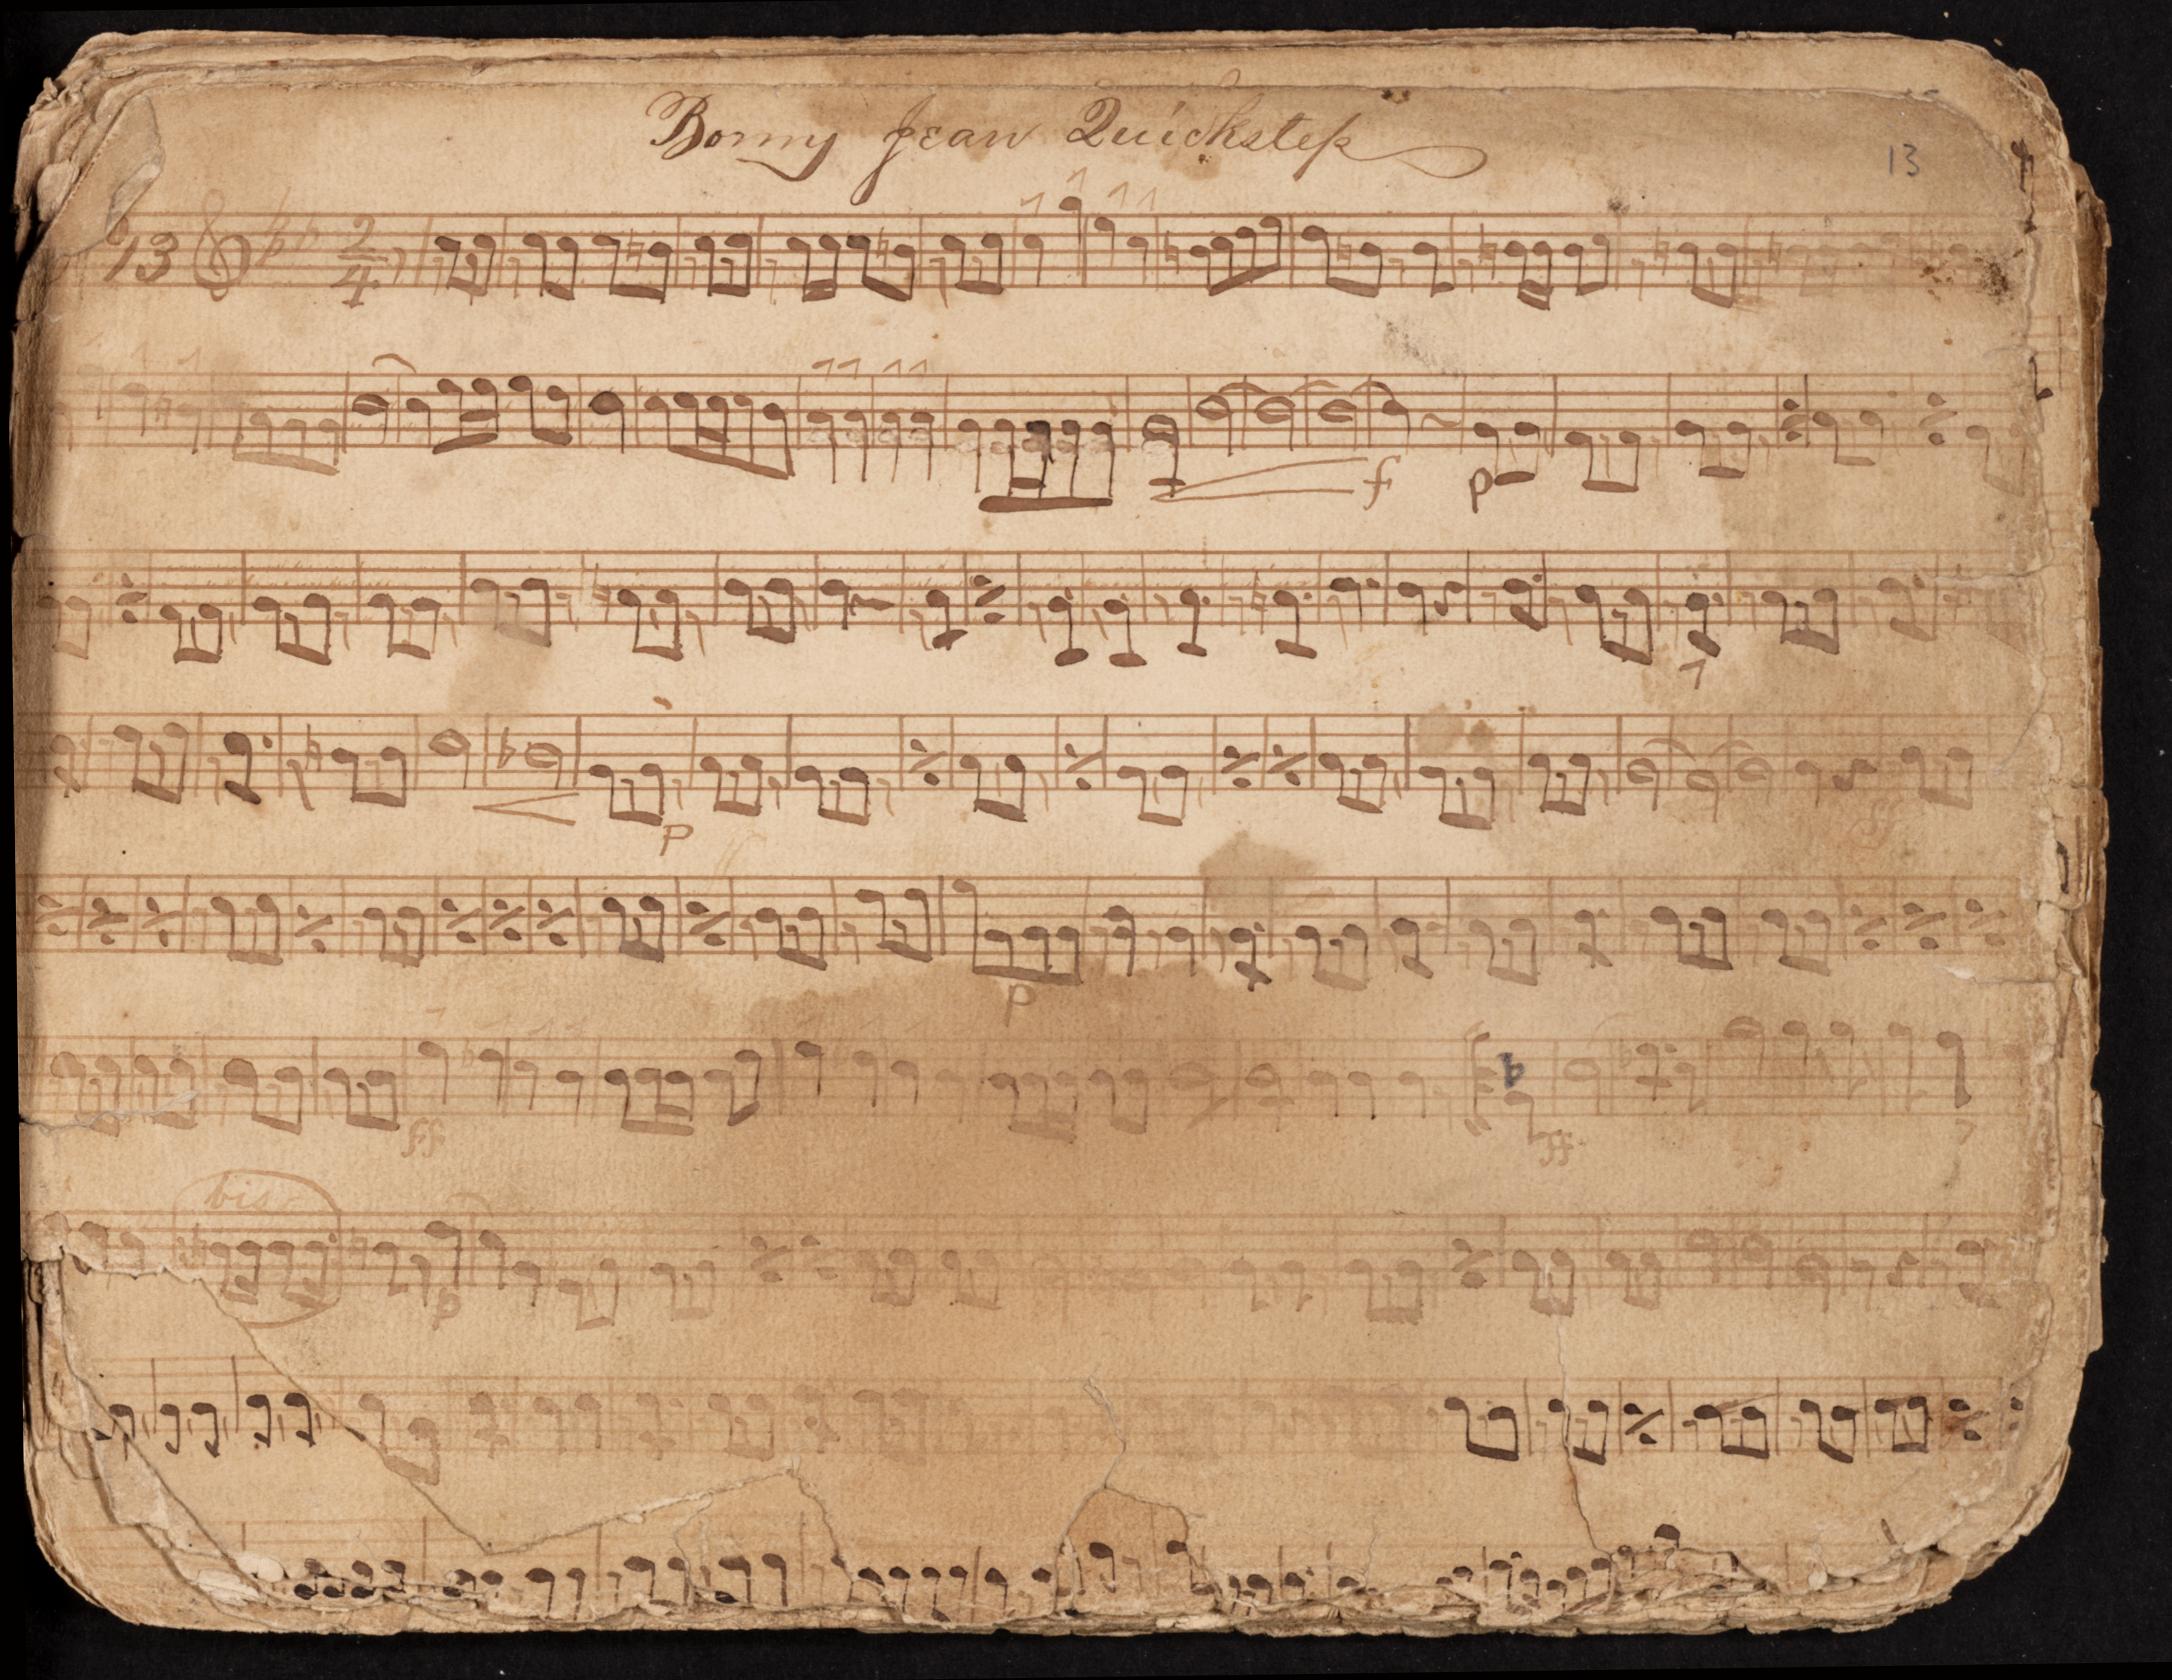 Bonny Jean Quickstep
13
13 2/4
f p
p
ff
p
ff ff
bis
p